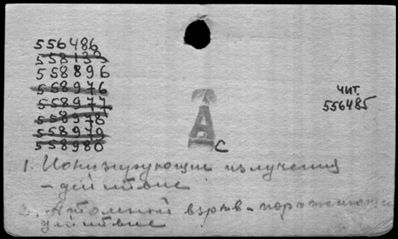 556486
558139
558896
558976
558977
558978
558979
558980
чит.
556485
А
с
1. Ионизирующие излучения
- действие
2. Атомный взрыв - поражающее
действие